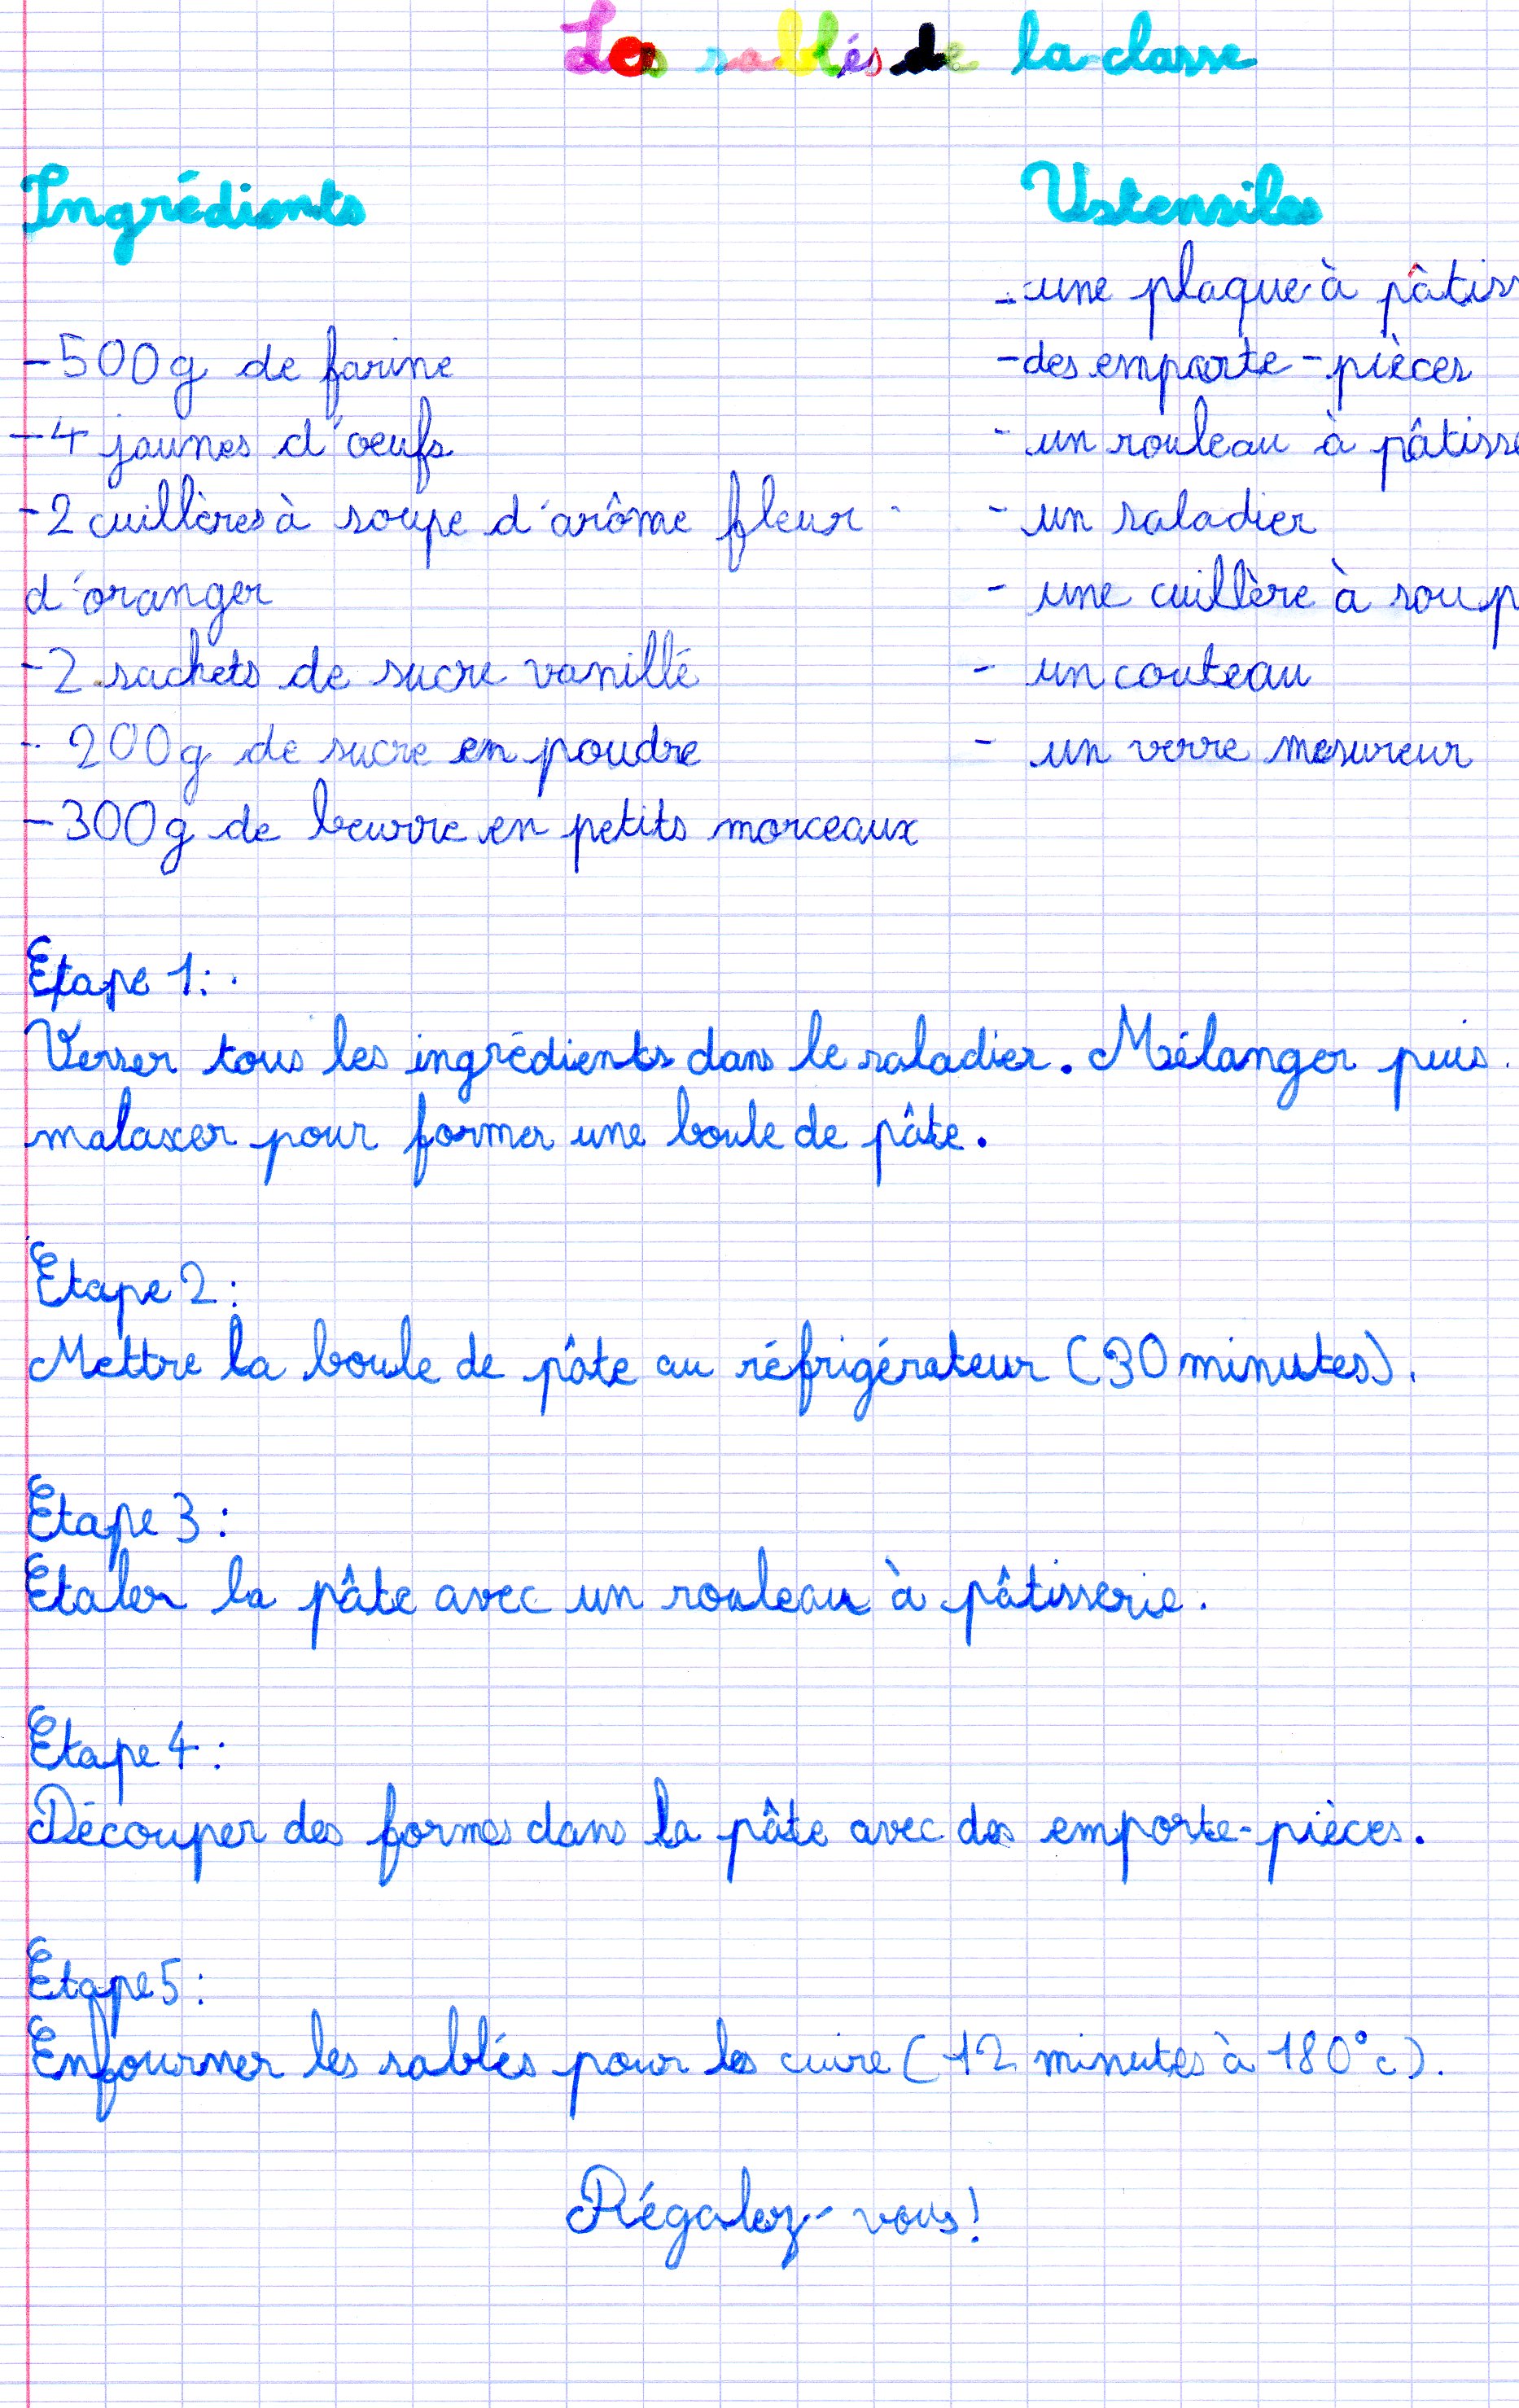 Les sablés de la classe
Ingrédients
-500g de farine
-4 jaunes d'oeufs
-2 cuillères à soupe d'arôme fleur
d'oranger
-2 sachets de sucre vanillé
- 200g de sucre en poudre
-300g de beurre en petits morceaux
Ustensiles
- une plaque à pâtiss
- des emporte-pièces
- un rouleau à pâtisse
- un saladier
- une cuillère à soup
- un couteau
- un verre mesureur
Etape 1:
Verser tous les ingrédients dans le saladier. Mélanger puis
malaxer pour former une boule de pâte.
Etape 2:
Mettre la boule de pâte au réfrigérateur (30 minutes).
Etape 3:
Etaler la pâte avec un rouleau à pâtisserie.
Etape 4:
Découper des formes dans la pâte avec des emporte-pièces.
Etape 5:
Enfourner les sablés pour les cuire (12 minutes à 180°c).
Régalez-vous!